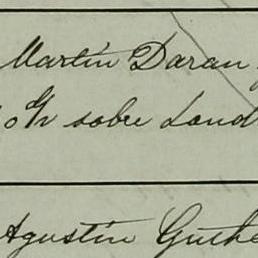 Martin Daran
sobre Lond
Agustin Guthe